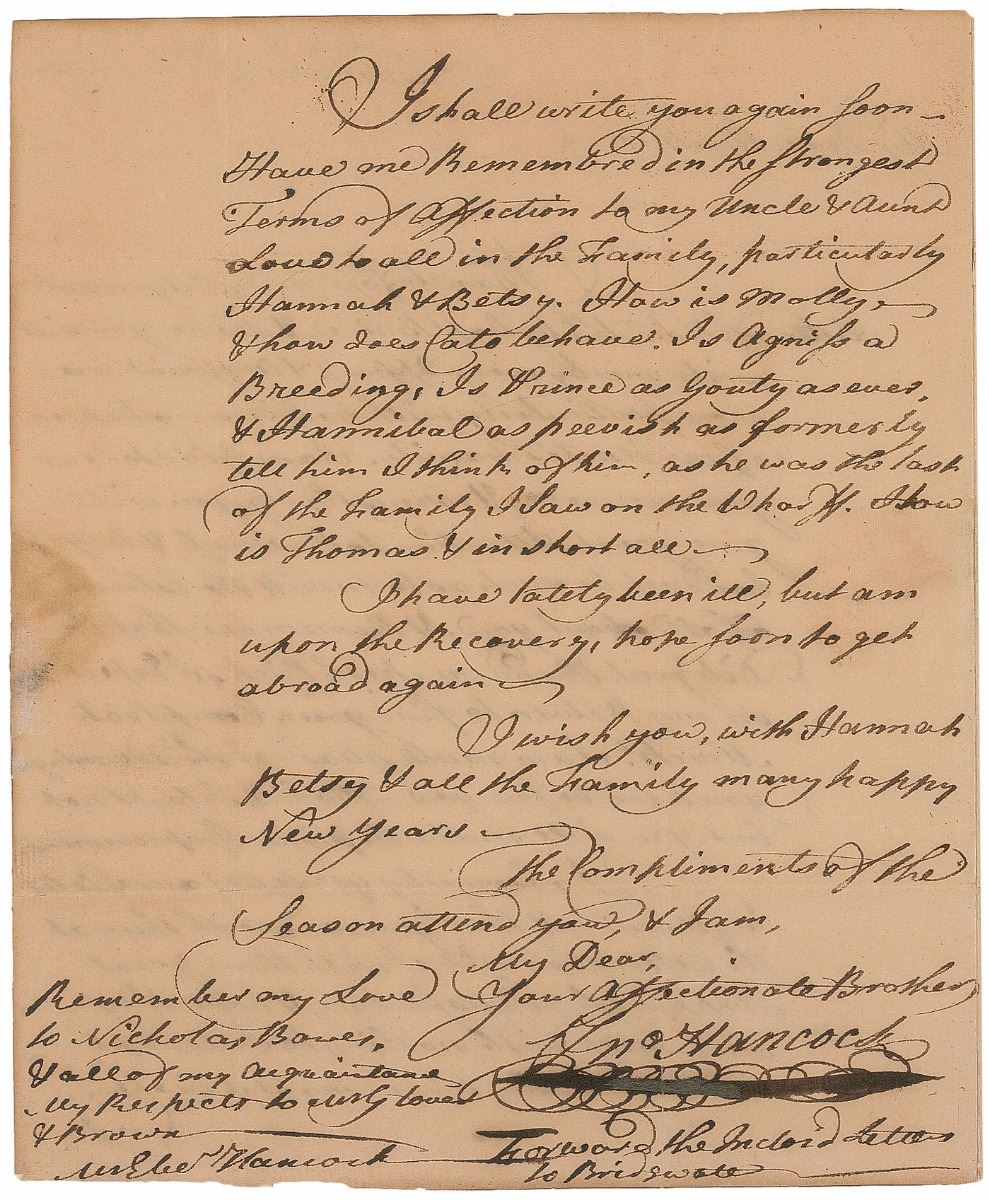 I shall write you again soon —
Have me Remembred in the strongest
Terms of Affection to my Uncle & Aunt
Love to all in the Family, particularly
Hannah & Betsy. How is Molly,
& how does Cato behave. Is Agniss a
Breeding, Is Prince as Gouty as ever,
& Hannibal as peevish as formerly
tell him I think of him, as he was the last
of the Family I saw on the Wharff. How
is Thomas & in short all —
I have lately been ill, but am
upon the Recovery, hope soon to get
abroad again —
I wish you, with Hannah
Betsey & all the Family many happy
New Years —
The Compliments of the
Season attend you, & I am,
My Dear,
Your Affectionate Brother
Jno. Hancock
Remember my Love
to Nicholas Bowes,
& all of my Acquaintance
My Respects to
& Brown
Mr Eber Hancock
Forward the Inclos'd Letter
to Bridgwate